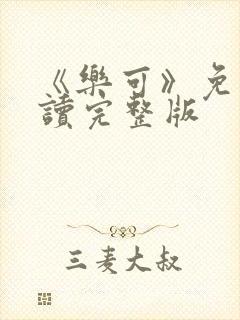 《樂可》免
讀完整版
三麦大叔